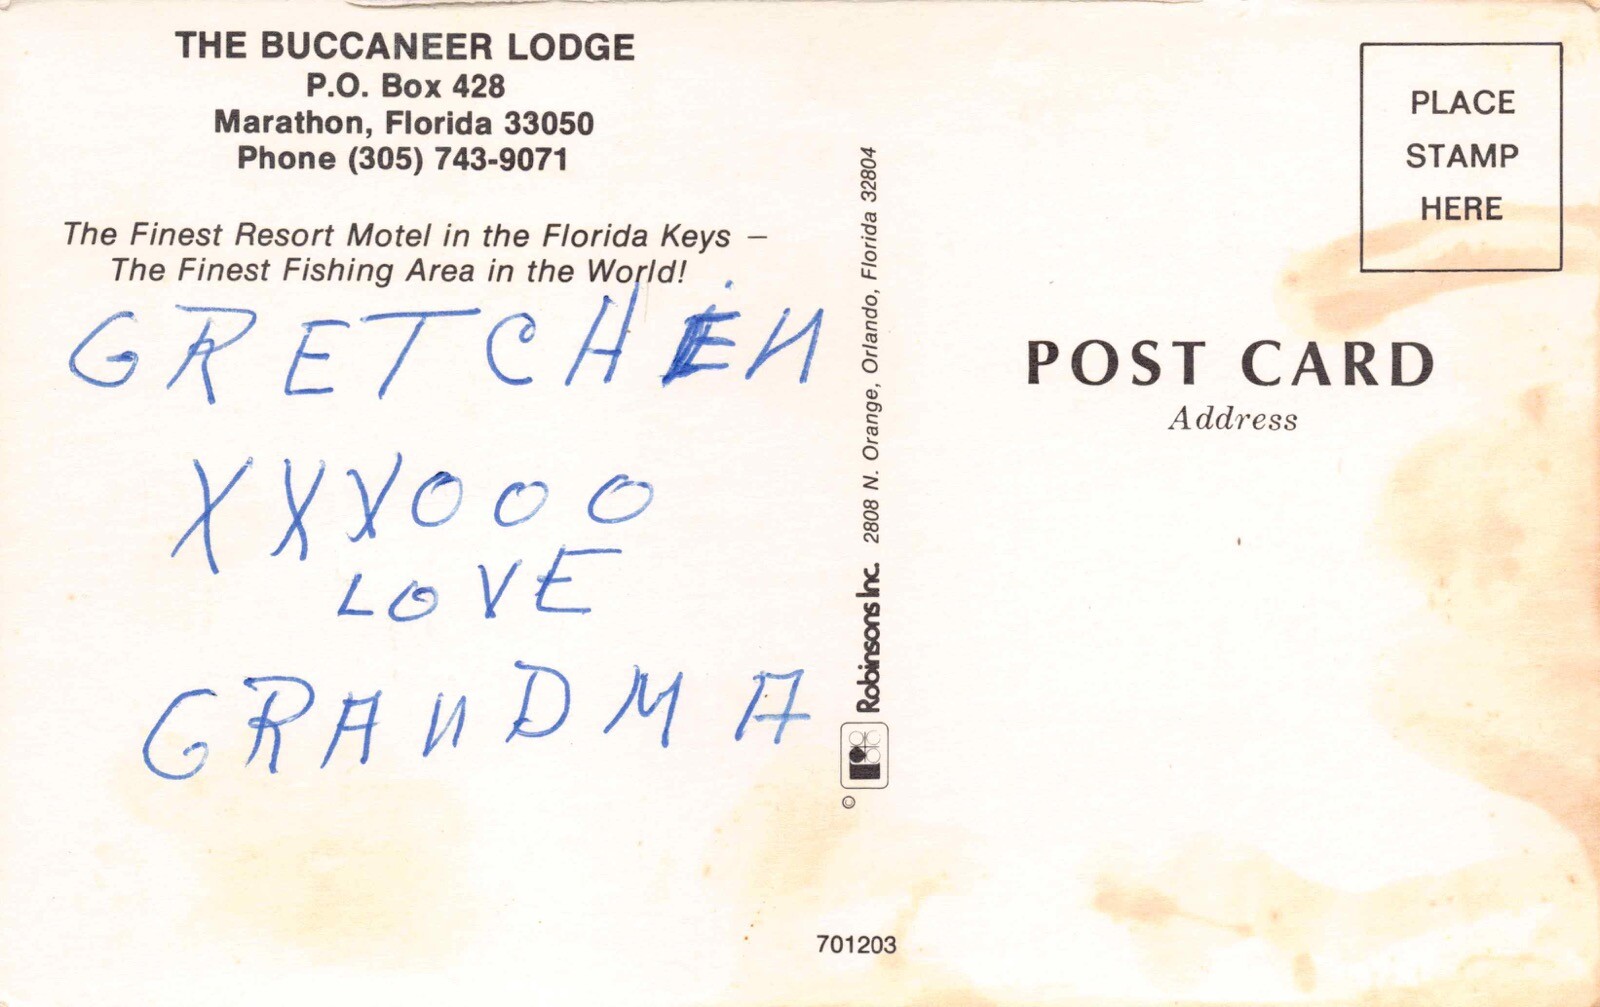 THE BUCCANEER LODGE
P.O. Box 428
Marathon, Florida 33050
Phone (305) 743-9071
The Finest Resort Motel in the Florida Keys –
The Finest Fishing Area in the World!
GRETCHEN
XXXOOO
LOVE
GRANDMA
© Robinsons Inc. 2808 N. Orange, Orlando, Florida 32804
701203
PLACE
STAMP
HERE
POST CARD
Address